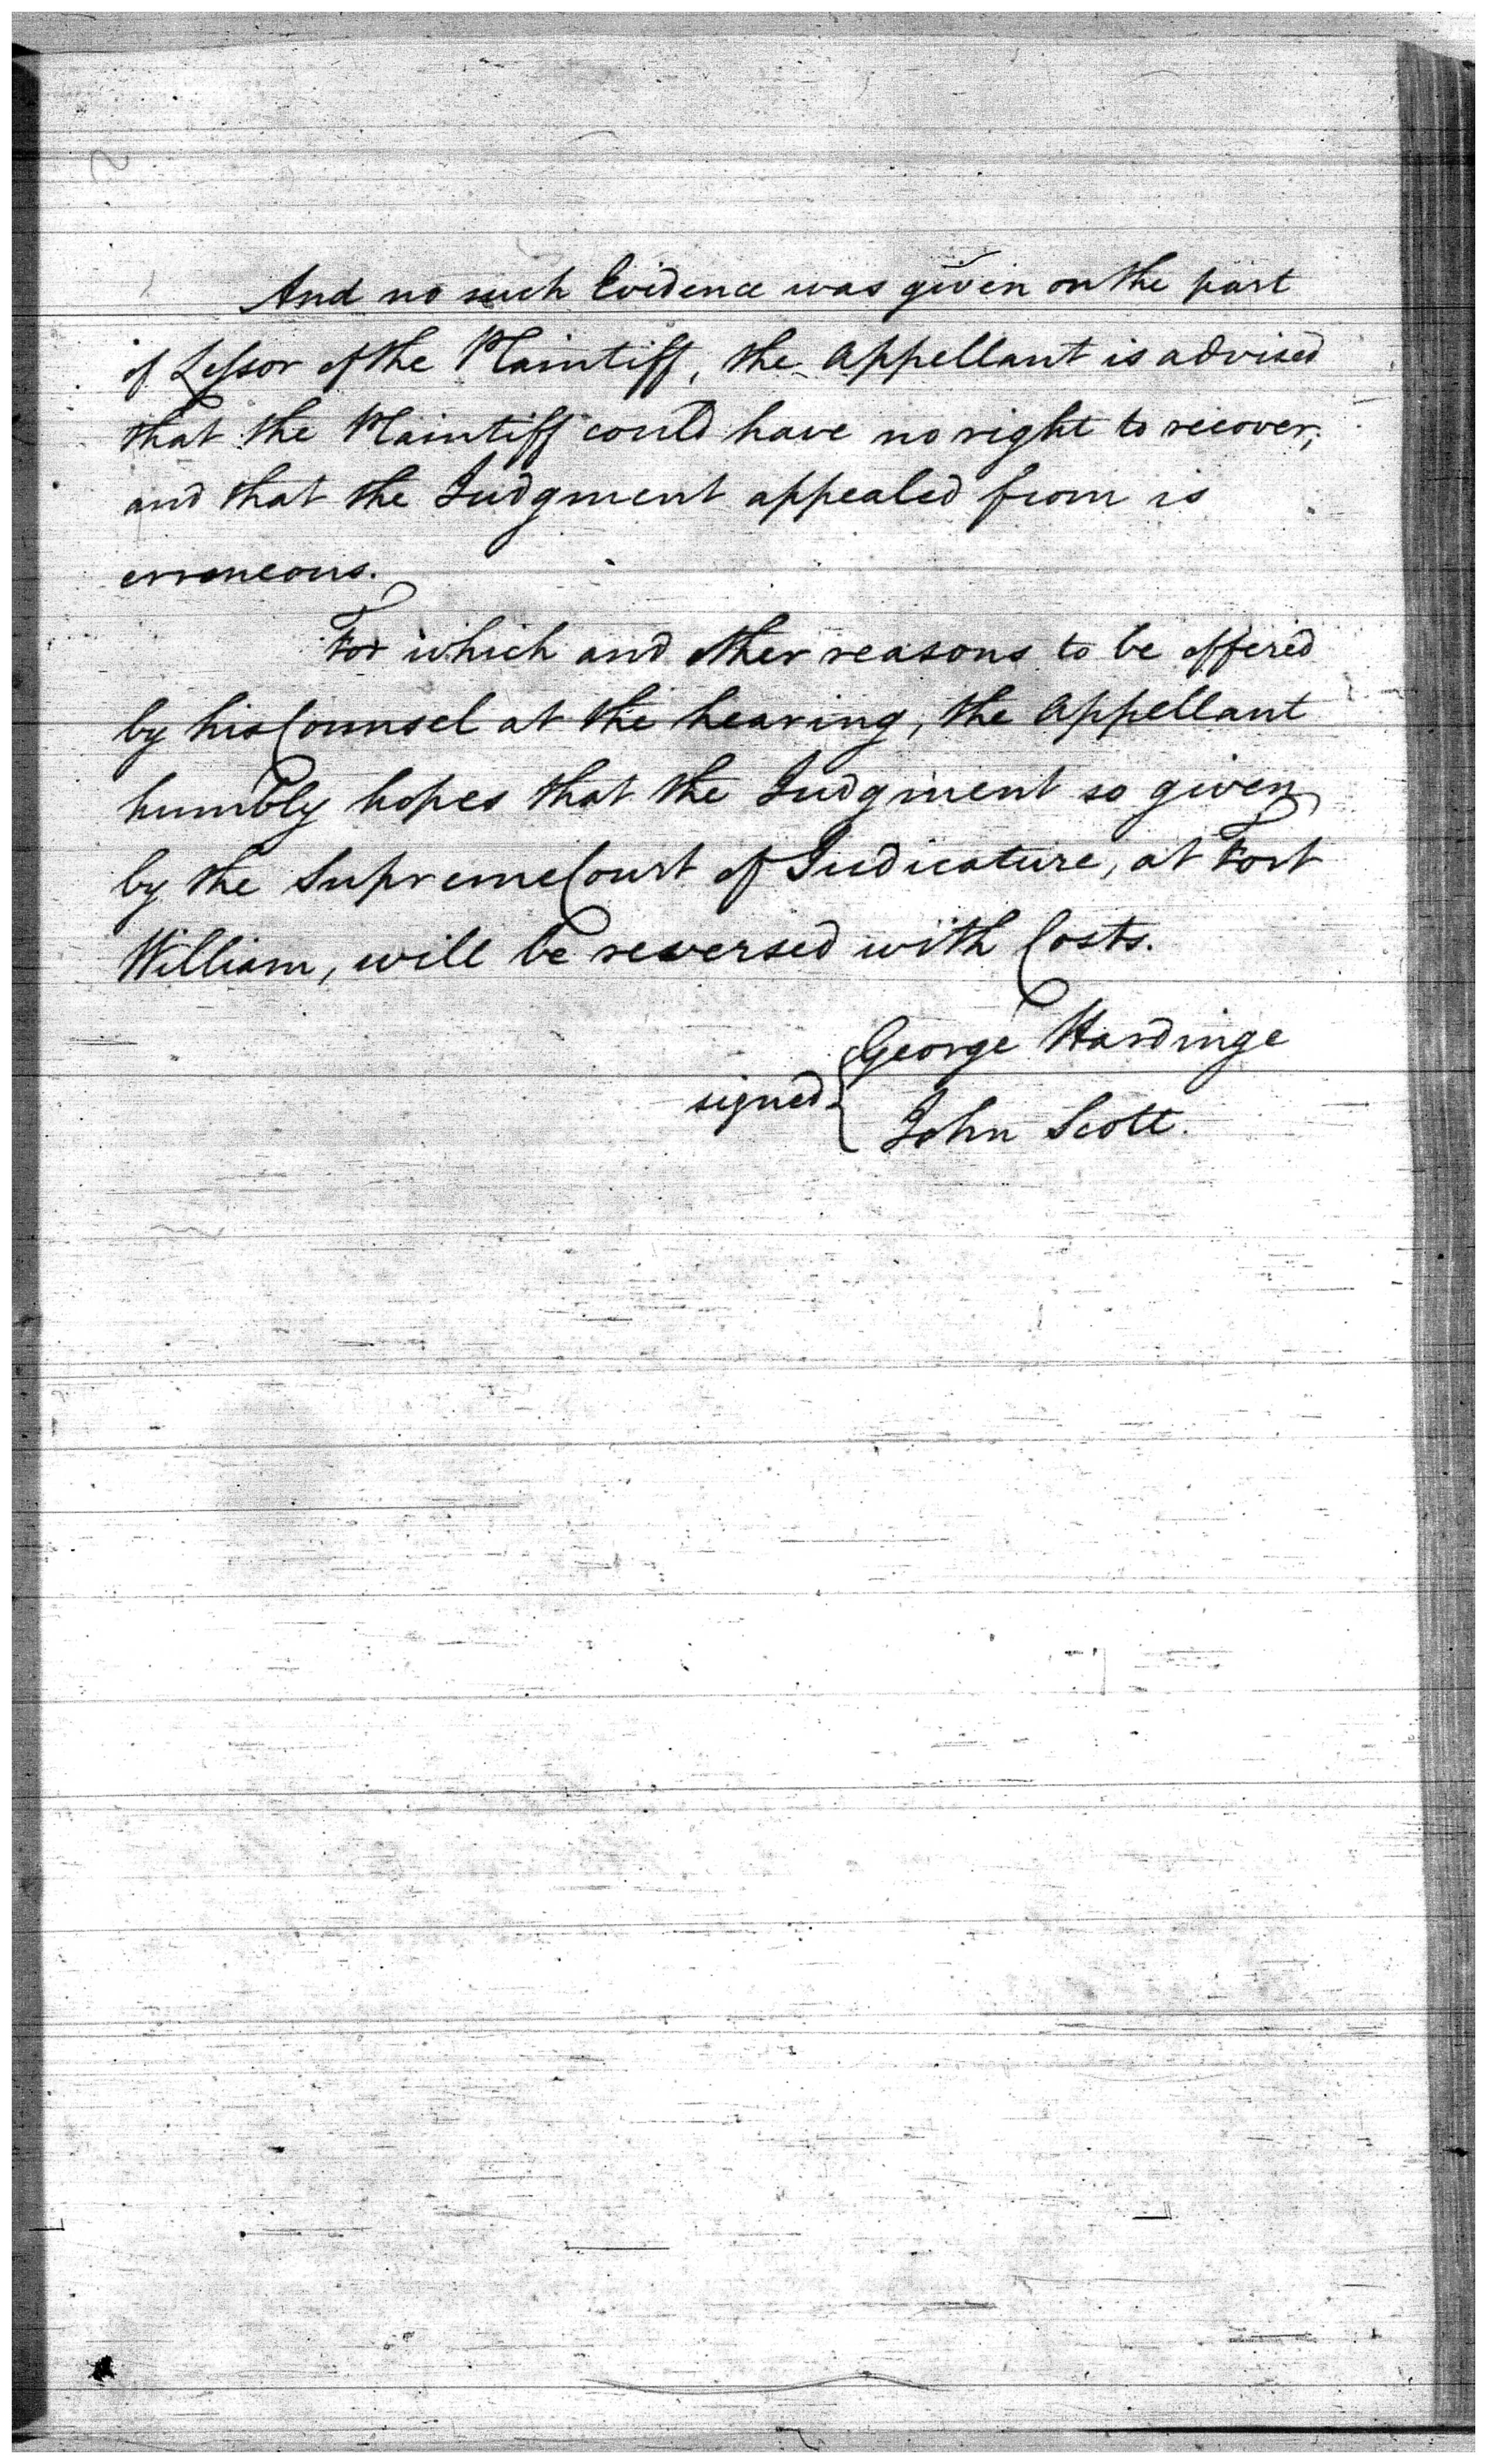 And no such Evidence was given on the part
of Lessor of the Plaintiff, the Appellant is advised
that the Plaintiff could have no right to recover,
and that the Judgment appealed from is
erroneous.
For which and other reasons to be offered
by his Counsel at the hearing, the Appellant
humbly hopes that the Judgment so given
by the Supreme Court of Judicature, at Fort
William, will be reversed with Costs.
George Hardinge
signed
John Scott.